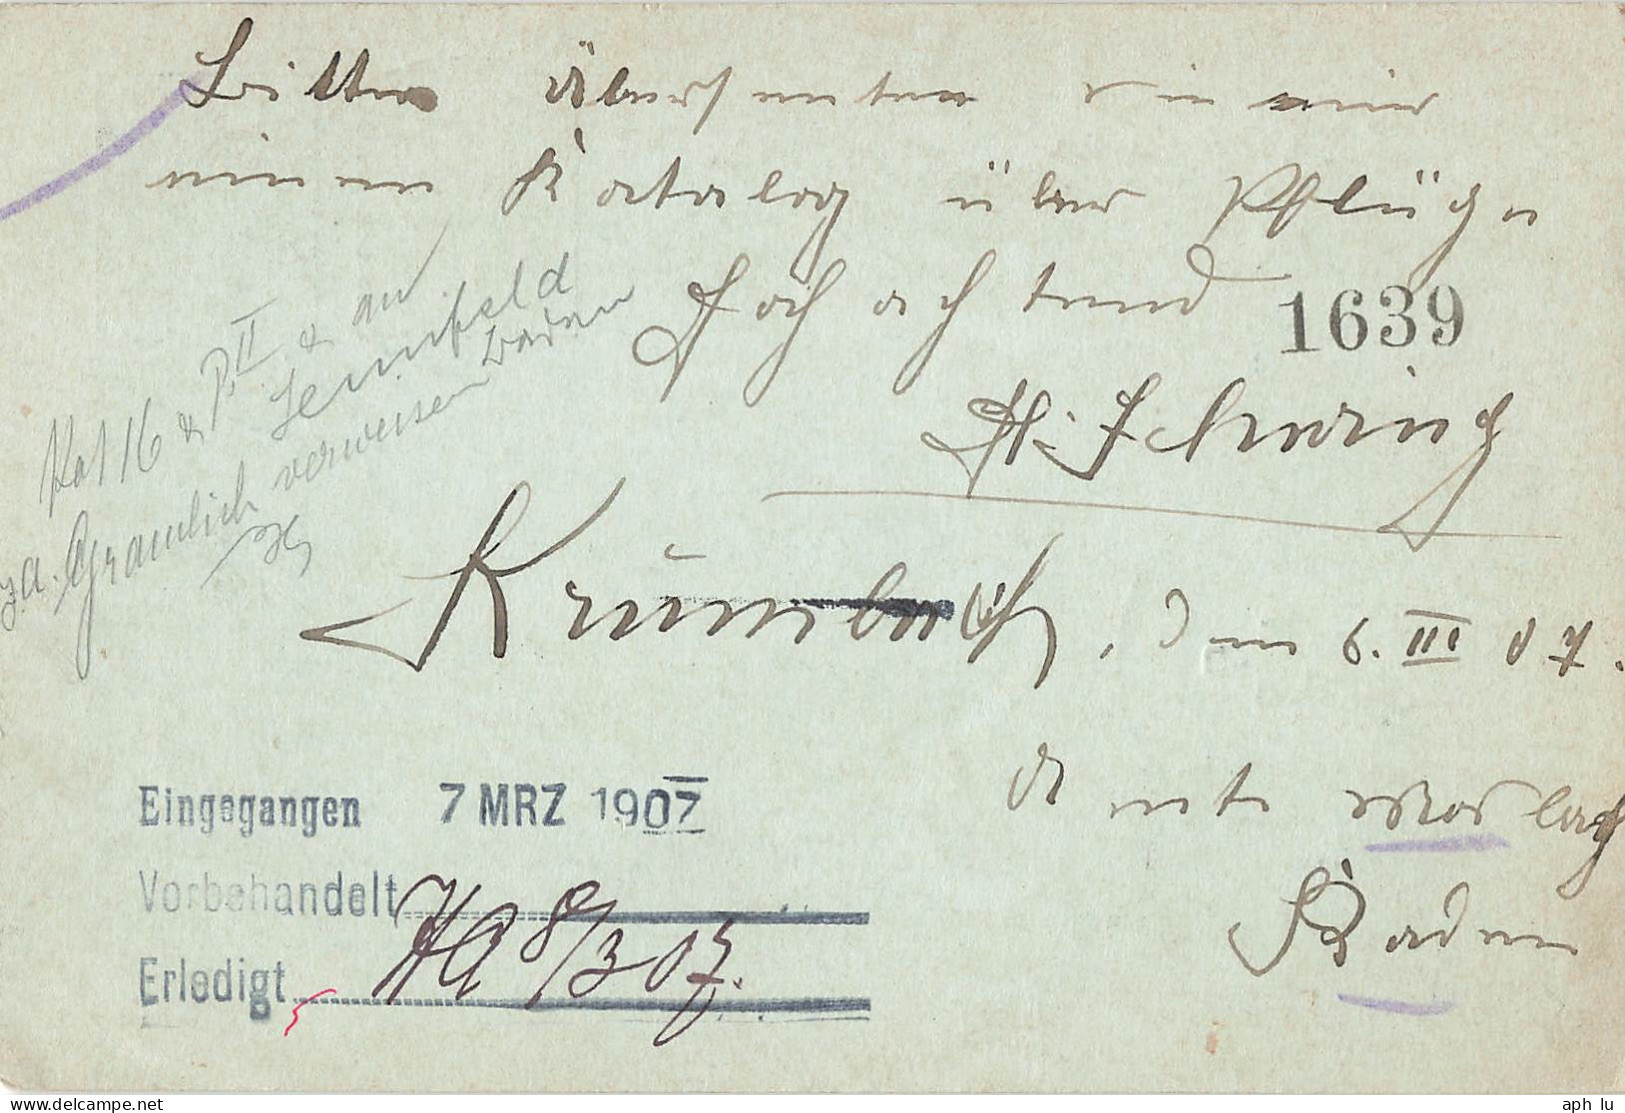 Bitte übersenten sie mir
einen Katalog über Pflüge
Hochachtend
1639
H. Schwing
Kat 16 & P. II & an
Sennfeld
z. a. Gramlich verweisen Baden
Krumbach, den 6. III 07.
Amt Mosbach
Baden
Eingegangen 7 MRZ 1907
Vorbehandelt
Erledigt 8/3 07.
aph_lu